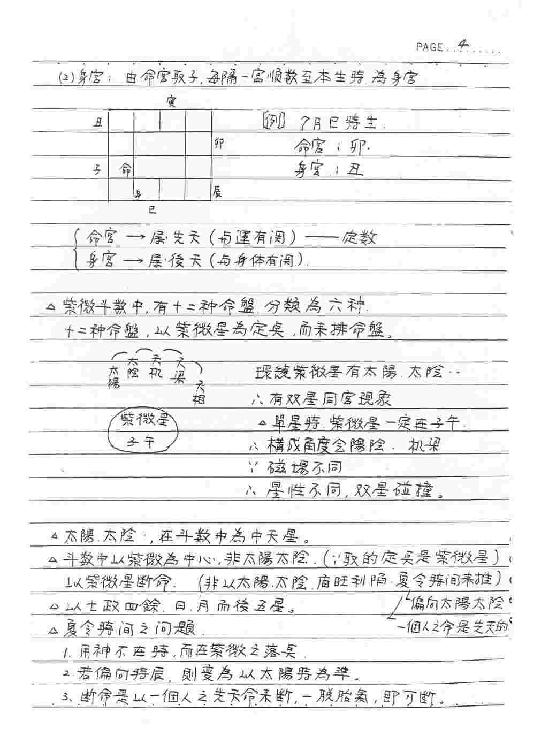 PAGE 4
(2)身宮: 由命宮取子,每隔一宮順数至本生時,為身宮
寅
丑
[例] 7月巳時生.
卯
命宮:卯.
子 命
身宮:丑
身 辰
巳
命宮→屬先天(与運有関)——定数
身宮→屬後天(与身体有関).
△紫微斗数中,有十二种命盤,分類為六种.
十二种命盤,以紫微星為定点,而来排命盤。
太陽 太陰 天机 天梁 天相
環繞紫微星有太陽.太陰‥
∴有双星同宮現象
紫微星
子午
△單星時,紫微星一定在子午.
∴構成角度会陽陰.机梁
∵磁場不同
∴星性不同,双星碰撞。
△太陽.太陰‥,在斗数中為中天星。
△斗数中以紫微為中心,非太陽太陰.(∵取的定点是紫微星)
以紫微星断命.(非以太陽.太陰.廟旺利陷.夏令時间来推)
△以七政四餘.日.月而後五星。
偏向太陽太陰
△夏令時间之问題.
一個人之命是先天的
1.用神不在時,而在紫微之落点.
2.若偏向時辰,則变為以太陽時為準。
3.断命是以一個人之先天命来断,一脱胎氣,即可断。